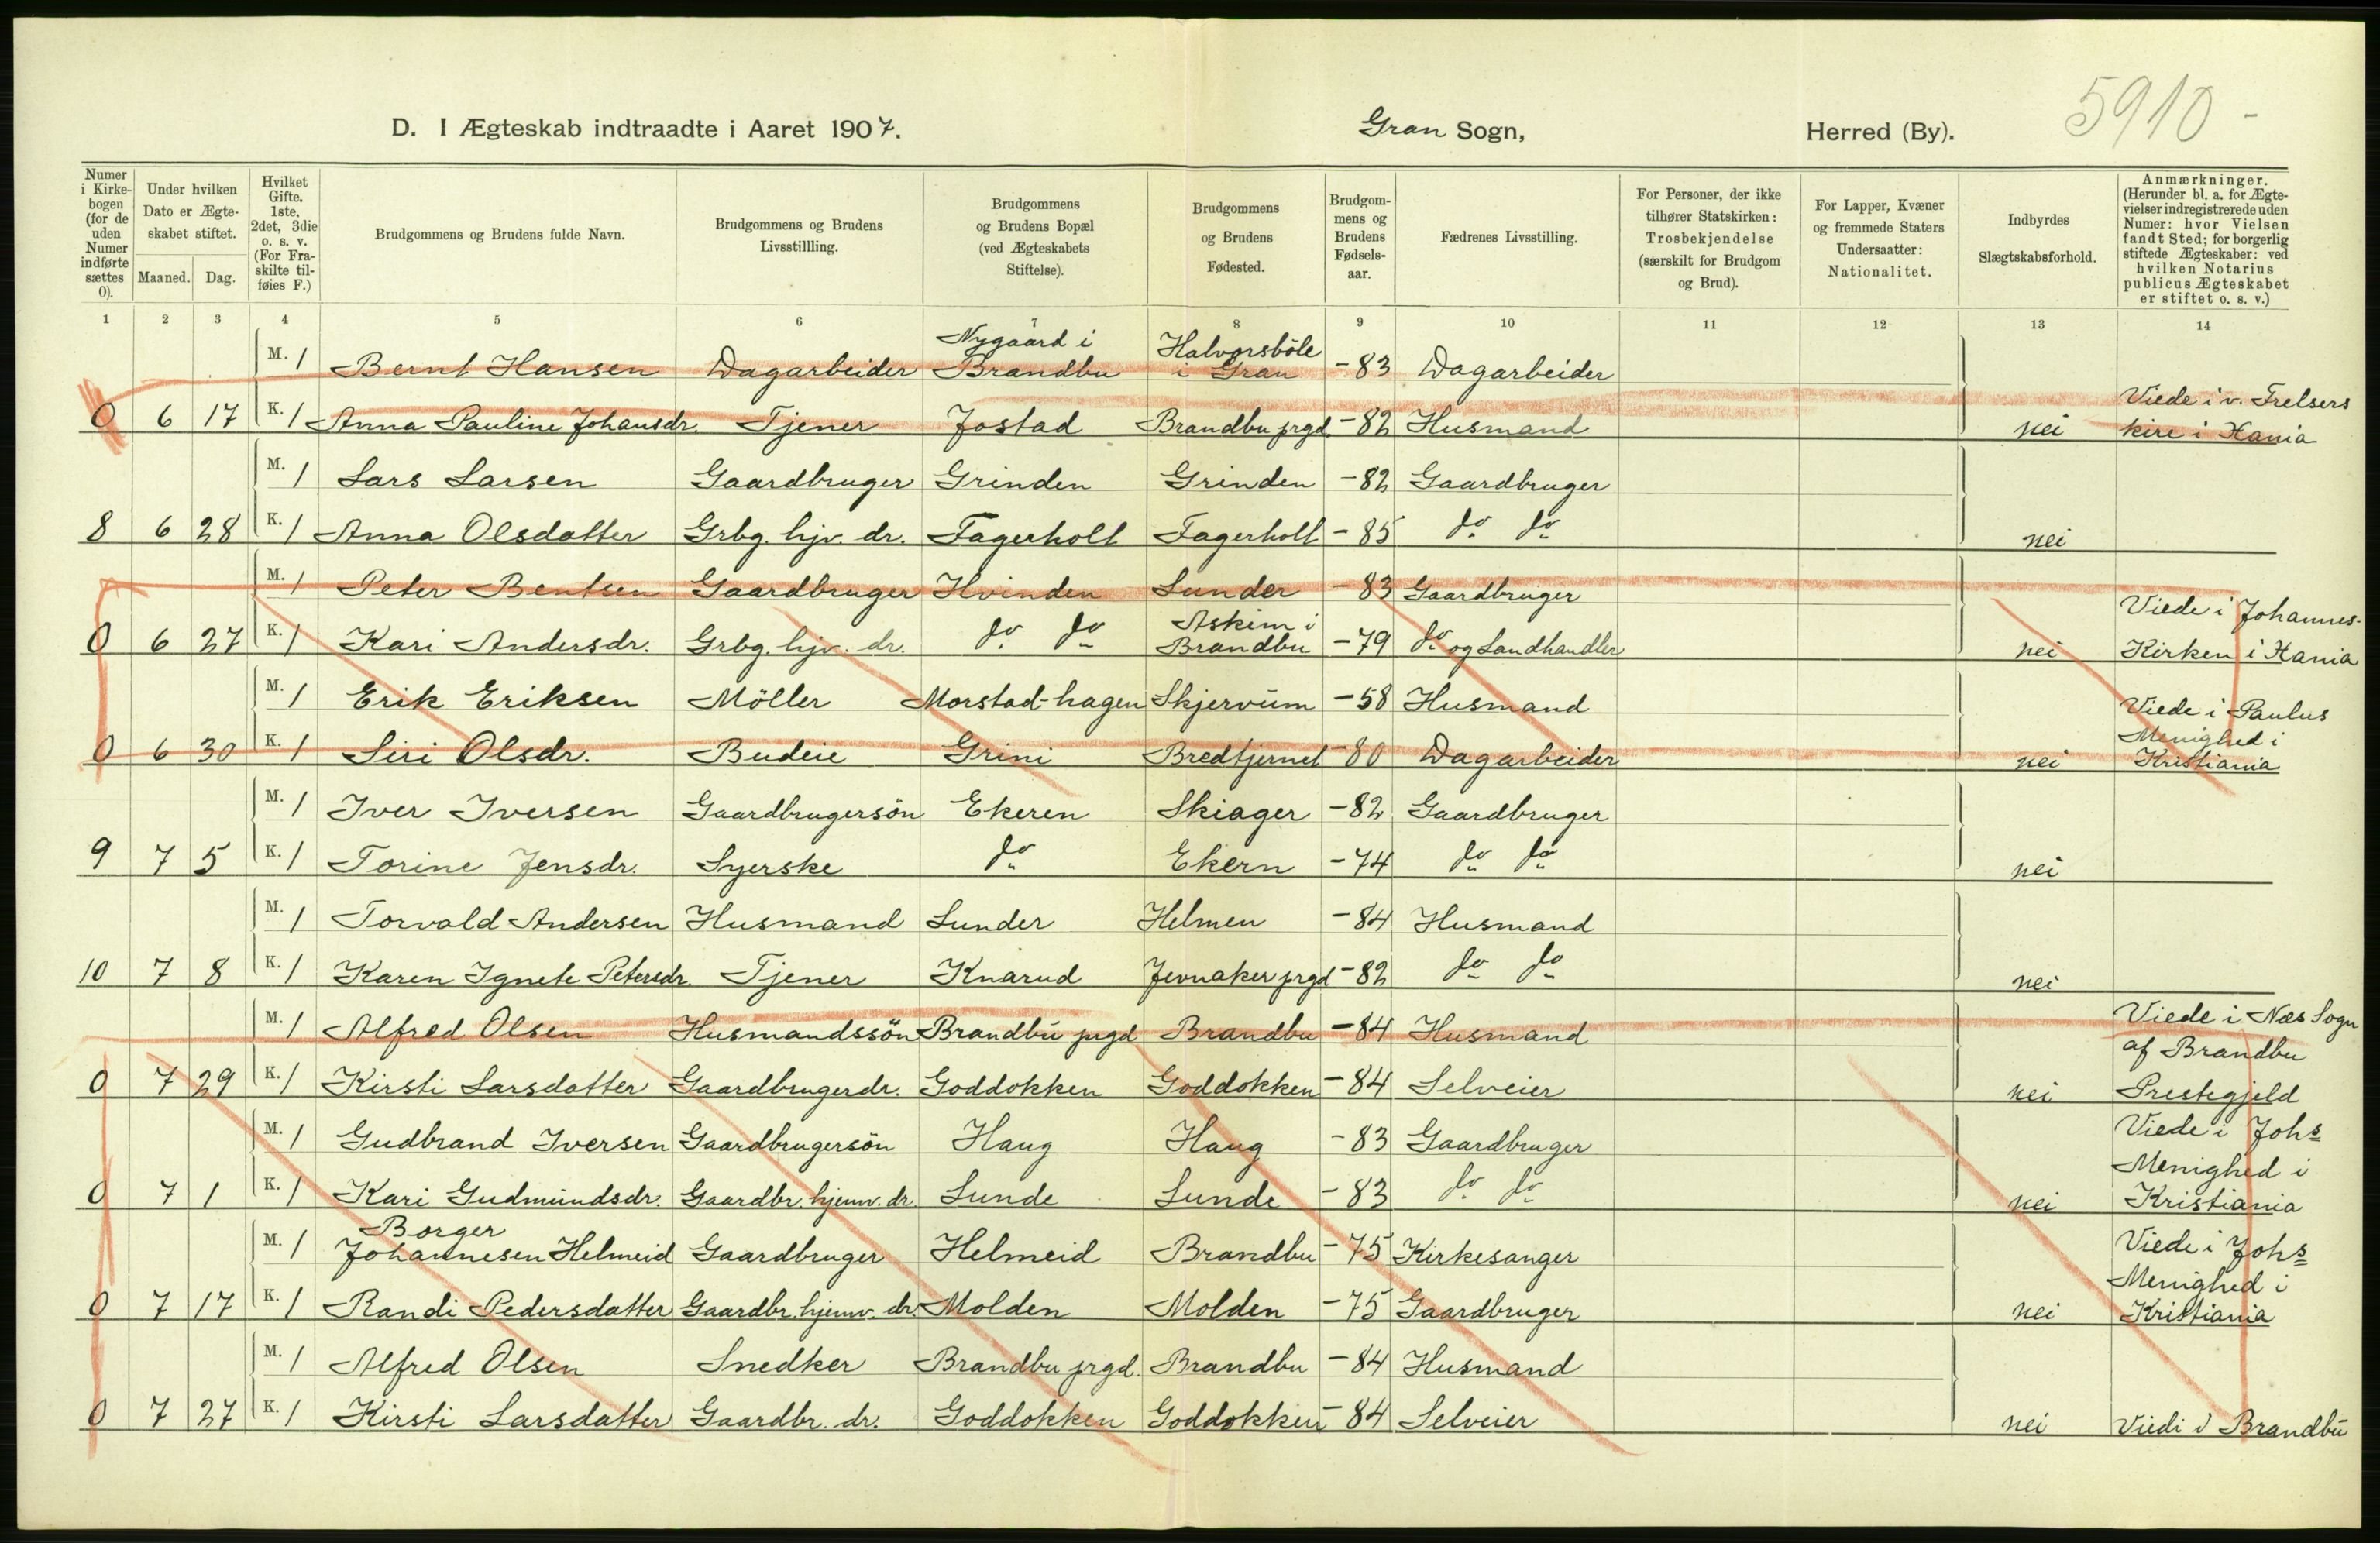 5910 -
D. I Ægteskab indtraadte i Aaret 1907. Gran Sogn, Herred (By).
Numer i Kirkebogen (for de uden Numer indførte sættes 0).
Under hvilken Dato er Ægteskabet stiftet.
Maaned. Dag.
Hvilket Gifte. 1ste, 2det, 3die o. s. v. (For Fraskilte tilføies F.)
Brudgommens og Brudens fulde Navn.
Brudgommens og Brudens Livsstillling.
Brudgommens og Brudens Bopæl (ved Ægteskabets Stiftelse).
Brudgommens og Brudens Fødested.
Brudgommens og Brudens Fødselsaar.
Fædrenes Livsstilling.
For Personer, der ikke tilhører Statskirken: Trosbekjendelse (særskilt for Brudgom og Brud).
For Lapper, Kvæner og fremmede Staters Undersaatter: Nationalitet.
Indbyrdes Slægtskabsforhold.
Anmærkninger. (Herunder bl. a. for Ægtevielser indregistrerede uden Numer: hvor Vielsen fandt Sted; for borgerlig stiftede Ægteskaber: ved hvilken Notarius publicus Ægteskabet er stiftet o. s. v.)
1 2 3 4 5 6 7 8 9 10 11 12 13 14
M. 1 Bernt Hansen Dagarbeider Nygaard i Brandbu Halvorsböle i Gran -83 Dagarbeider
0 6 17 K. 1 Anna Pauline Johansdr. Tjener Jostad Brandbu prgd. -82 Husmand nei Viede i v. Frelsers kire i Kania
M. 1 Lars Larsen Gaardbruger Grinden Grinden -82 Gaardbruger
8 6 28 K. 1 Anna Olsdatter Grbg. hjv. dr. Fagerholt Fagerholt -85 do do nei
M. 1 Peter Bentsen Gaardbruger Hvinden Lunder -83 Gaardbruger
0 6 27 K. 1 Kari Andersdr. Grbg. hjv. dr. do do Askim i Brandbu -79 do og Landhandler nei Viede i Johannes-Kirken i Kania
M. 1 Erik Eriksen Möller Morstad-hagen Skjervum -58 Husmand
0 6 30 K. 1 Siri Olsdr. Budeie Grini Bredtjernet -80 Dagarbeider nei Viede i Paulus Menighed i Kristiania
M. 1 Iver Iversen Gaardbrugersön Ekeren Skiager -82 Gaardbruger
9 7 5 K. 1 Torine Jensdr. Syerske do Ekern -74 do do nei
M. 1 Torvald Andersen Husmand Lunder Helmen -84 Husmand
10 7 8 K. 1 Karen Ignete Petersdr. Tjener Knarud Jevnaker prgd -82 do do nei
M. 1 Alfred Olsen Husmandssön Brandbu prgd Brandbu -84 Husmand
0 7 29 K. 1 Kirsti Larsdatter Gaardbrugerdr. Goddokken Goddokken -84 Selveier nei Viede i Næs Sogn af Brandbu Prestegjeld
M. 1 Gudbrand Iversen Gaardbrugersön Haug Haug -83 Gaardbruger
0 7 1 K. 1 Kari Gudmundsdr. Gaardbr. hjemv. dr. Lunde Lunde -83 do do nei Viede i Johs Menighed i Kristiania
M. 1 Borger Johannesen Helmeid Gaardbruger Helmeid Brandbu -75 Kirkesanger
0 7 17 K. 1 Randi Pedersdatter Gaardbr. hjemv. dr. Molden Molden -75 Gaardbruger nei Viede i Johs Menighed i Kristiania
M. 1 Alfred Olsen Snedker Brandbu prgd. Brandbu -84 Husmand
0 7 27 K. 1 Kirsti Larsdatter Gaardbr. dr. Goddokken Goddokken -84 Selveier nei Viedi i Brandbu